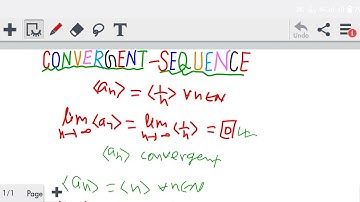 Undo
CONVERGENT-SEQUENCE
<an> = <1/n> ∀n∈N
lim n→∞ <an> = lim n→∞ <1/n> = 0
<an> convergent
<an> = <n> ∀n∈N
1/1 Page